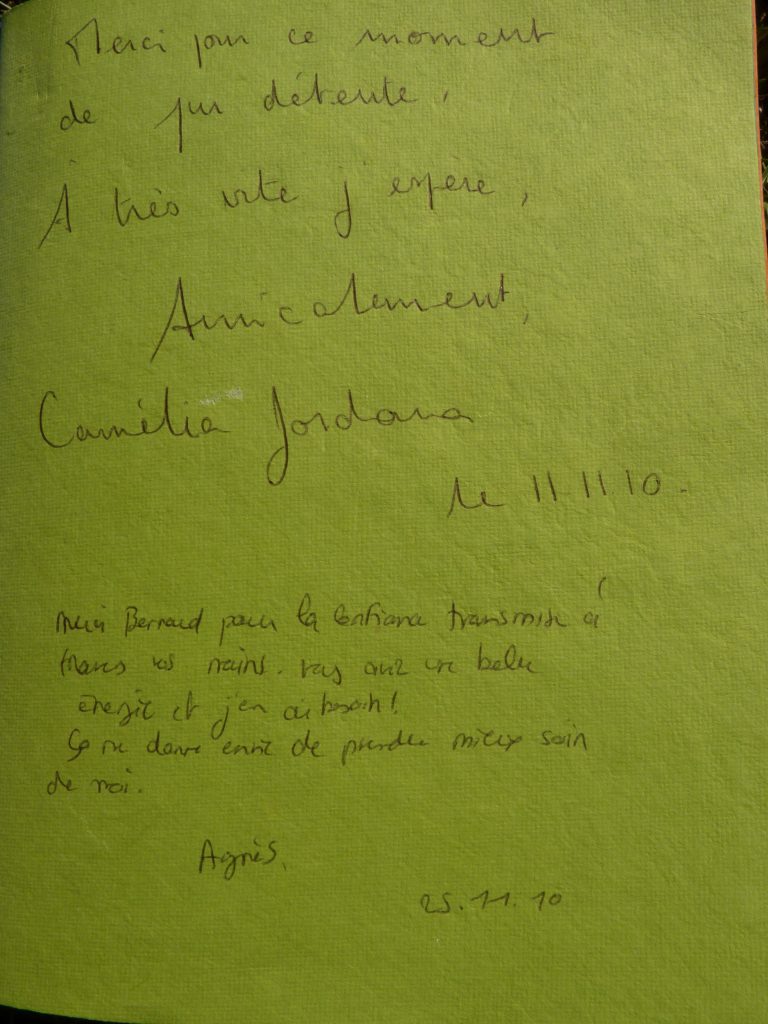 Merci pour ce moment
de pur détente,
A très vite j'espère,
Amicalement,
Camélia Jordana
le 11.11.10.
merci Bernard pour la confiance transmise à
travers vos mains. vous avez une belle
énergie et j'en ai besoin!
ça me donne envie de prendre mieux soin
de moi.
Agnès.
25.11.10